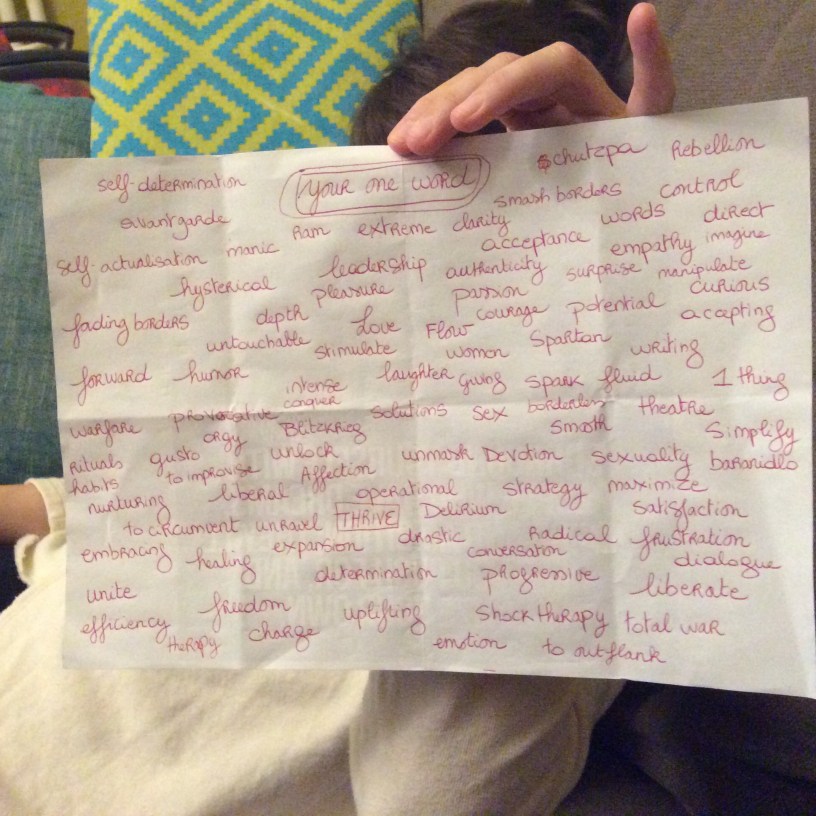 schutzpa Rebellion
self-determination your one word smash borders control
avantgarde Ram extreme clarity words direct
self-actualisation manic acceptance empathy imagine
hysterical leadership authenticity surprise manipulate
fading borders depth pleasure passion courage potential curious
untouchable Love Flow accepting
stimulate women Spartan writing
forward humor intense laughter giving spark fluid 1 thing
conquer
warfare provocative solutions sex borderless theatre
orgy Blitzkrieg Smooth Simplify
rituals gusto unlock unmask Devotion sexuality
habits to improvise Affection
nurturing liberal operational strategy maximize
to circumvent unravel THRIVE Delirium satisfaction
embracing healing expansion drastic Radical frustration
conversation dialogue
unite determination progressive liberate
efficiency freedom uplifting Shock therapy total war
therapy charge emotion to outflank